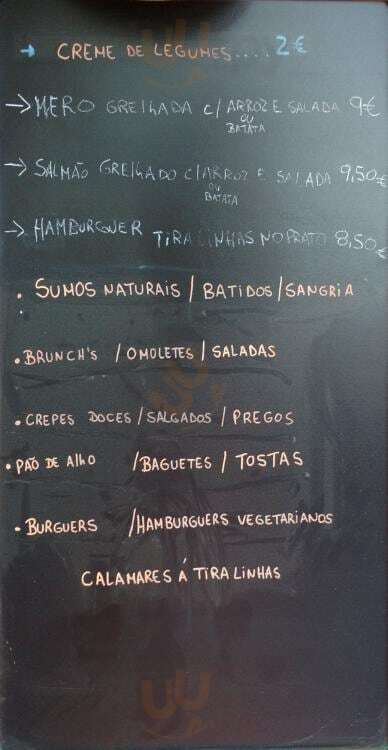 → CREME DE LEGUMES.... 2€
→ MERO GRELHADA C/ ARROZ E SALADA 9€
OU
BATATA
→ SALMÃO GRELHADO C/ARROZ E SALADA 9,50€
OU
BATATA
→ HAMBURGUER TIRALINHAS NO PRATO 8,50€
• SUMOS NATURAIS / BATIDOS / SANGRIA
• BRUNCH'S / OMOLETES / SALADAS
• CREPES DOCES / SALGADOS / PREGOS
• PÃO DE AlhO / BAGUETES / TOSTAS
• BURGUERS / HAMBURGUERS VEGETARIANOS
CALAMARES Á TIRALINHAS